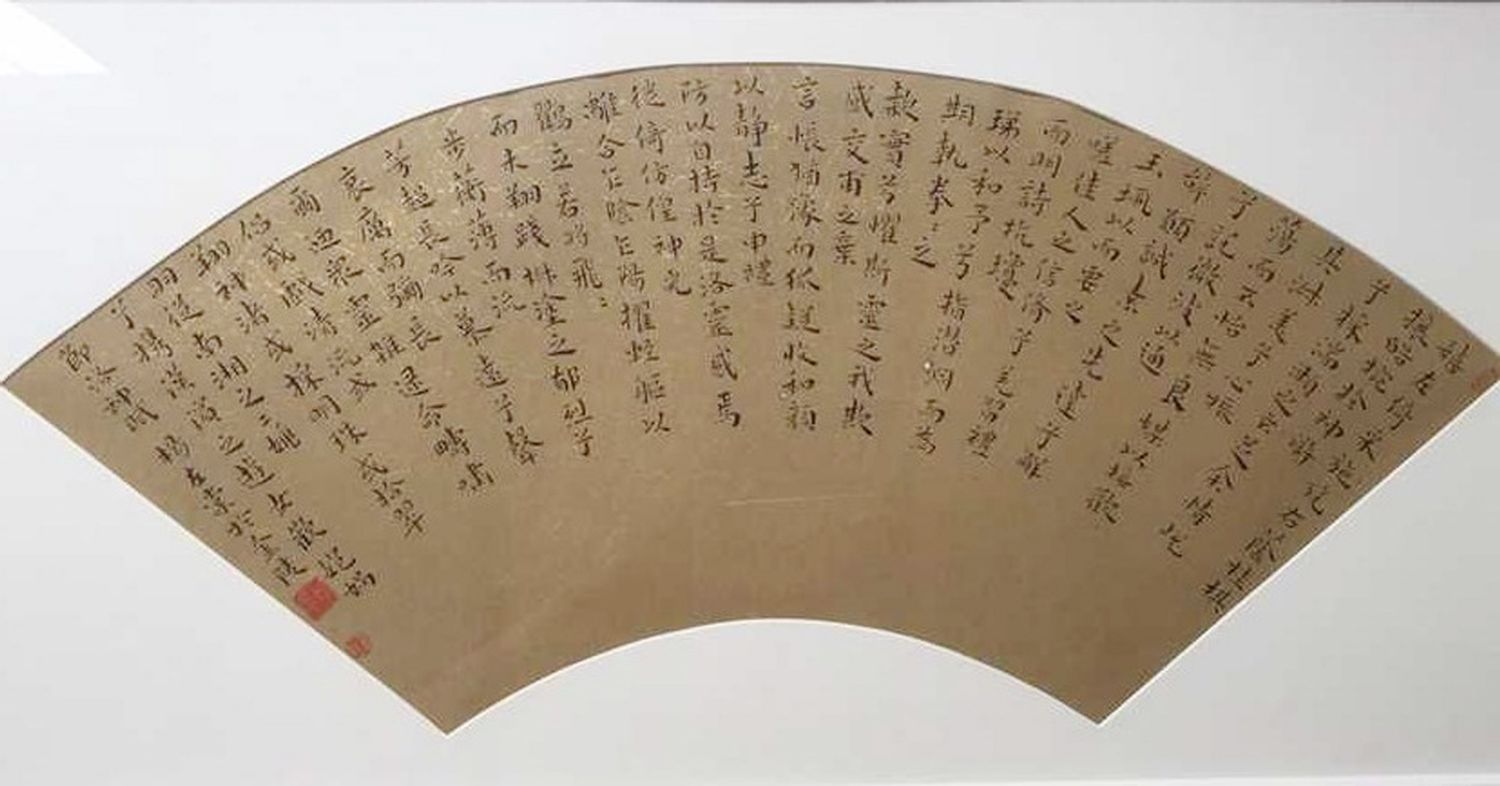 嬉左倚采旄右蔭桂旗攘
皓腕於神滸
兮採湍瀨之玄芝余情悅
其淑美兮心振
蕩而不怡無良媒以接歡
兮託微波以通
辞願誠素之先達兮解
玉珮以而要之
嗟佳人之信修兮羌習禮
而明詩抗瓊
珶以和予兮指潛淵而為
期執拳〻之
款實兮懼斯靈之我欺
感交甫之棄
言悵猶豫而狐疑收和顏
以静志兮申禮
防以自持於是洛靈感焉
徙倚彷徨神光
離合乍陰乍陽擢輕軀以
鶴立若将飛〻
而未翔踐椒塗之郁烈兮
步蘅薄而流
芳超長吟以慕遠兮聲
哀厲而彌長
爾迺眾靈雜遝命疇嘯
侶或戲清流或
翔神渚或採明珠或拾翠
羽從南湘之二姚
兮攜漢濱之遊女
節洛神賦
於金陵